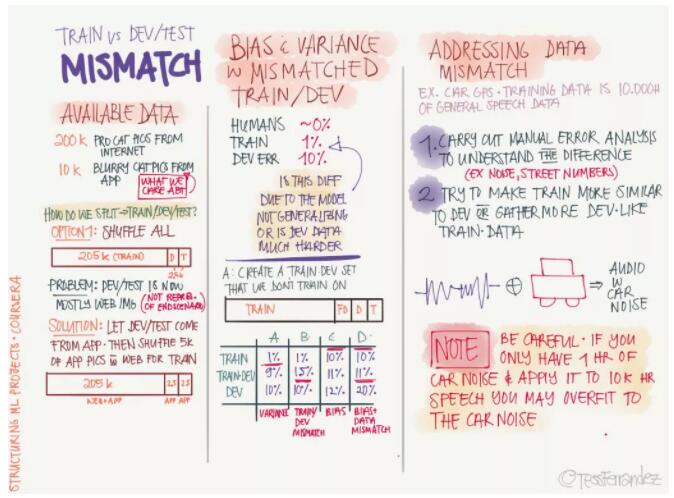 TRAIN vs DEV/TEST
MISMATCH
AVAILABLE DATA
200k PRO CAT PICS FROM
INTERNET
10k BLURRY CAT PICS FROM
APP WHAT WE
CARE ABT
HOW DO WE SPLIT → TRAIN/DEV/TEST?
OPTION 1: SHUFFLE ALL
205k (TRAIN) D T
PROBLEM: DEV/TEST IS NOW
MOSTLY WEB IMG (NOT REPRES.
OF END SCENARIO)
SOLUTION: LET DEV/TEST COME
FROM APP. THEN SHUFFLE 5K
OF APP PICS W WEB FOR TRAIN
205k 2.5 2.5
WEB+APP APP APP
STRUCTURING ML PROJECTS · COURSERA
BIAS & VARIANCE
W MISMATCHED
TRAIN/DEV
HUMANS ~0%
TRAIN 1%
DEV ERR 10%
IS THIS DIFF
DUE TO THE MODEL
NOT GENERALIZING
OR IS DEV DATA
MUCH HARDER
A: CREATE A TRAIN-DEV SET
THAT WE DON'T TRAIN ON
TRAIN TD D T
A B C D
TRAIN 1% 1% 10% 10%
TRAIN-DEV 9% 1.5% 11% 11%
DEV 10% 10% 12% 20%
VARIANCE TRAIN/ BIAS BIAS+
DEV DATA
MISMATCH MISMATCH
ADDRESSING DATA
MISMATCH
EX. CAR GPS · TRAINING DATA IS 10.000H
OF GENERAL SPEECH DATA
1. CARRY OUT MANUAL ERROR ANALYSIS
TO UNDERSTAND THE DIFFERENCE
(EX NOISE, STREET NUMBERS)
2 TRY TO MAKE TRAIN MORE SIMILAR
TO DEV OR GATHER MORE DEV-LIKE
TRAIN-DATA
AUDIO
W
CAR
NOISE
NOTE BE CAREFUL · IF YOU
ONLY HAVE 1 HR OF
CAR NOISE & APPLY IT TO 10K HR
SPEECH YOU MAY OVERFIT TO
THE CAR NOISE
©TessFerrandez